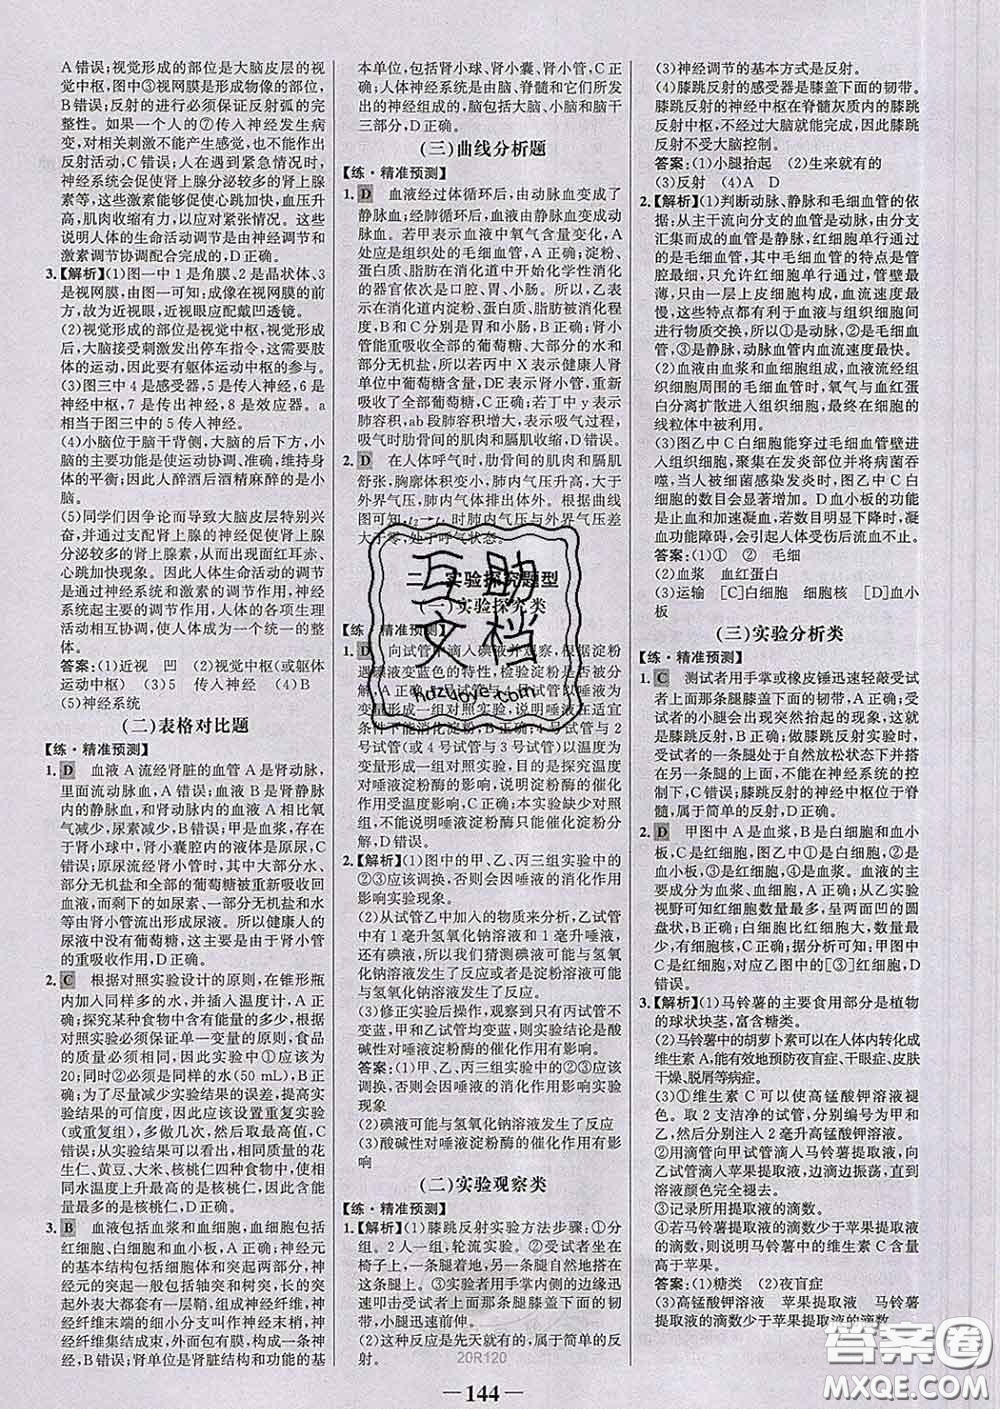 A错误;视觉形成的部位是大脑皮层的视
觉中枢,图中③视网膜是形成物像的部位,
B错误;反射的进行必须保证反射弧的完
整性。如果一个人的⑦传入神经发生病
变,对相关刺激不能产生感觉,也不能作出
反射活动,C错误;人在遇到紧急情况时,
神经系统会促使肾上腺分泌较多的肾上腺
素,这些激素能够促使心跳加快,血压升
高,肌肉收缩有力,以应对紧张情况。这些
说明人体的生命活动调节是由神经调节和
激素调节协调配合完成的,D正确。
3.【解析】(1)图一中1是角膜,2是晶状体,3
是视网膜,由图一可知:成像在视网膜的前
方,故为近视眼,近视眼应配戴凹透镜。
(2)视觉形成的部位是视觉中枢,视觉形成
后,大脑接受刺激发出停车指令,这需要肢
体的运动,因此要有躯体运动中枢的参与。
(3)图三中4是感受器,5是传入神经,6是
神经中枢,7是传出神经,8是效应器。a
相当于图三中的5传入神经。
(4)小脑位于脑干背侧,大脑的后下方,小
脑的主要功能是使运动协调、准确,维持身
体的平衡;因此人醉酒后酒精麻醉的是小
脑。
(5)同学们因争论而导致大脑皮层特别兴
奋,并通过支配肾上腺的神经促使肾上腺
分泌较多的肾上腺素,从而出现面红耳赤、
心跳加快现象。因此人体生命活动的调节
是通过神经系统和激素的调节作用,神经
系统起主要的调节作用,人体的各项生理
活动相互协调,使人体成为一个统一的整
体。
答案:(1)近视 凹 (2)视觉中枢(或躯体
运动中枢) (3)5 传入神经 (4)B
(5)神经系统
(二)表格对比题
【练·精准预测】
1. D 血液A流经肾脏的血管A是肾动脉,
里面流动脉血,A错误;血液B是肾静脉
内的静脉血,和肾动脉内的血液A相比氧
气减少,尿素减少,B错误;甲是血浆,存在
于肾小球中,肾小囊腔内的液体是原尿,C
错误;原尿流经肾小管时,其中大部分水、
部分无机盐和全部的葡萄糖被重新吸收回
血液,而剩下的如尿素、一部分无机盐和水
等由肾小管流出形成尿液。所以健康人的
尿液中没有葡萄糖,主要原因在于肾小管
的重吸收作用,D正确。
2. C 根据对照实验设计的原则,在锥形瓶
内加入同样多的水,并插入温度计,A正
确;探究某种食物中含有能量的多少,根据
对照实验必须保证单一变量的原则,食物
的质量必须相同,因此实验中①应该为
20;同时②必须是同样的水(50 mL),B正
确;为了尽量减少实验结果的误差,提高实
验结果的可信度,因此应该设置重复实验
(或重复组),多做几次,然后取最高值,C
错误;从实验结果可以看出,相同质量的花
生仁、黄豆、大米、核桃仁四种食物中,使水
温度上升最高的是核桃仁,因此含能量最
多的是核桃仁,D正确。
3. B 血液包括血浆和血细胞,血细胞包括
红细胞、白细胞和血小板,A正确;神经元
的基本结构包括细胞体和突起两部分,神
经元的突起一般包括轴突和树突,长的突
起大都套有一层鞘,组成神经纤维,神经纤
维末端的细小分支叫作神经末梢,所以
神经纤维集结成束,外面包有膜,构成一条
神经,B错误;肾单位是肾脏结构和功能的基
本单位,包括肾小球、肾小囊、肾小管,C正
确;人体神经系统是由脑、脊髓和它们所发
出的神经组成的,脑包括大脑、小脑和脑干
三部分,D正确。
(三)曲线分析题
【练·精准预测】
1. D 血液经过体循环后,由动脉血变成了
静脉血;经肺循环后,血液由静脉血变成动
脉血。若甲表示血液中氧气含量变化,A
处应是身体各处的毛细血管,A正确;淀粉、
蛋白质、脂肪在消化道中开始化学性消化
的器官依次是口腔、胃、小肠。所以,乙表
示在消化道内淀粉、蛋白质、脂肪被消化过程,
B和C分别是胃和小肠,B正确;肾小管
能重吸收全部的葡萄糖、大部分的水和
部分无机盐,所以若丙中X表示健康人肾
单位中葡萄糖含量,DE表示肾小管,重新
吸收了全部葡萄糖,C正确;若丁中y表示
肺容积,ab段肺容积增大,表示吸气过程,
吸气时肋骨间的肌肉和膈肌收缩,D错误。
2. D 在人体呼气时,肋骨间的肌肉和膈肌
舒张,胸廓体积变小,肺内气压增大,肺内气压
大于外界气压,肺内气体排出。根据曲线
图可知,t2—t4时肺内气压与外界气压差
大于零,处于呼气状态。
二、实验探究题型
(一)实验探究类
【练·精准预测】
1. D 向试管中滴入碘液并观察,根据淀粉
遇碘液变蓝色的特性,检验淀粉是否被分
解,A正确;1号试管与2号试管以唾液为
变量形成一组对照实验,说明唾液在适宜
条件下能消化淀粉,B正确;4号试管与2
号试管(或4号试管与3号试管)以温度为
变量形成一组对照实验,目的是探究温度
对唾液淀粉酶的影响,说明唾液淀粉酶的
作用受温度影响,C正确;本实验缺少对照
实验,不能说明唾液淀粉酶只能催化淀粉分
解,D错误。
2.【解析】(1)图中的甲、乙、丙三组实验中的
②③应该调换,否则会因唾液的消化作用
影响实验现象。
(2)从试管乙中加入的物质来分析,乙试管
中有1毫升氢氧化钠溶液和1毫升唾液,
还有碘液,所以我们猜测碘液可能与氢氧
化钠溶液发生了反应或者是淀粉溶液可能
与氢氧化钠溶液发生了反应。
(3)修正实验后操作,观察到只有丙试管不
变蓝,甲和乙试管均变蓝,则实验结论是酸
碱性对唾液淀粉酶的催化作用有影响。
答案:(1)甲、乙、丙三组实验中的②③应该
调换,否则会因唾液的消化作用影响实验
现象
(2)碘液可能与氢氧化钠溶液发生反应
(3)酸碱性对唾液淀粉酶的催化作用有影
响
(二)实验观察类
【练·精准预测】
1.【解析】(1)膝跳反射实验方法步骤:①分
组。2人一组,轮流实验。②受试者坐在
椅子上,一条腿着地,另一条腿自然地搭在
这条腿上。③实验者用手掌内侧的边缘迅
速叩击受试者上面那条腿膝盖下面的韧
带,小腿迅速前伸。
(2)这种反应是先天就有的,属于简单的反
射。
(3)神经调节的基本方式是反射。
(4)膝跳反射的感受器是膝盖下面的韧带。
膝跳反射的神经中枢在脊髓灰质内的膝跳
反射中枢,不通过大脑就能完成,因此膝跳
反射不受大脑控制。
答案:(1)小腿抬起 (2)生来就有的
(3)反射 (4)A D
2.【解析】(1)判断动脉、静脉和毛细血管的依
据:从主干流向分支的血管是动脉,由分支
汇集而成的血管是静脉,红细胞单行通过
的是毛细血管。其中毛细血管的特点是管
腔最细,只允许红细胞单行通过,管壁最
薄,只由一层上皮细胞构成,血流速度最
慢,这些特点都有利于血液与组织细胞间
进行物质交换,所以①是动脉,②是毛细血
管,③是静脉,动脉血管内血流速度最快。
(2)血液由血浆和血细胞组成,血液流经组
织细胞周围的毛细血管时,氧气与血红蛋
白分离扩散进入组织细胞,最终在细胞的
线粒体中被利用。
(3)图乙中C白细胞能穿过毛细血管壁进
入组织细胞,聚集在发炎部位并将病菌吞
噬,当病菌感染发炎时,图乙中C白
细胞的数目会显著增加。血小板的功能
是止血和加速凝血,而D数目明显下降时,凝
血功能障碍,会引起人体受伤后流血不止。
答案:(1)① ② 毛细
(2)血浆 血红蛋白
(3)运输 [C]白细胞 细胞核 [D]血小
板
(三)实验分析类
【练·精准预测】
1. C 测试者用手掌或橡皮锤迅速轻敲受试
者上面那条腿膝盖下面的韧带,A正确;受
试者的小腿会出现突然抬起的现象,这就
是膝跳反射,B正确;做膝跳反射实验时,
受试者的一条腿处于自然放松状态下并搭
在另一条腿上面,不能用意识控制自己的
下肢,C错误;膝跳反射的神经中枢位于脊
髓,属于简单的反射,D正确。
2. D 甲图中A是血浆,B是白细胞和血小
板,C是红细胞;图乙中①是血小板,②是
血浆,③是红细胞,④是白细胞。血液的
主要成分为血浆和血细胞,从乙实验
视野可知红细胞数量最多,呈两面凹的圆
盘状。白细胞比红细胞大,数量最
少,C错误;据分析可知:甲图中
C是红细胞,对应乙图中的[③]红细胞,D
错误。
3.【解析】(1)马铃薯的主要食用部分是植物
的球状块茎,富含糖类。
(2)马铃薯中的胡萝卜素可以在人体内转化成
维生素A,能有效地预防夜盲症、干眼症、皮肤
干燥、脱屑等病症。
(3)①维生素C可以使高锰酸钾溶液褪
色。取2支洁净的试管,分别编号为甲和
乙,然后分别注入2毫升高锰酸钾溶液。
②用滴管向甲试管滴入马铃薯提取液,向
乙试管滴入苹果提取液,边滴边振荡,直到
溶液颜色完全褪去。
③记录所用提取液的滴数。
④若马铃薯提取液的滴数少于苹果提取液
的滴数,则说明马铃薯中的维生素C含量
高于苹果。
答案:(1)糖类 (2)夜盲症
(3)高锰酸钾溶液 苹果提取液 马铃薯提
取液的滴数少于苹果提取液的滴数
互助文档
hdzuoye.com
20R120
— 144 —
答案圈
MXQE.COM